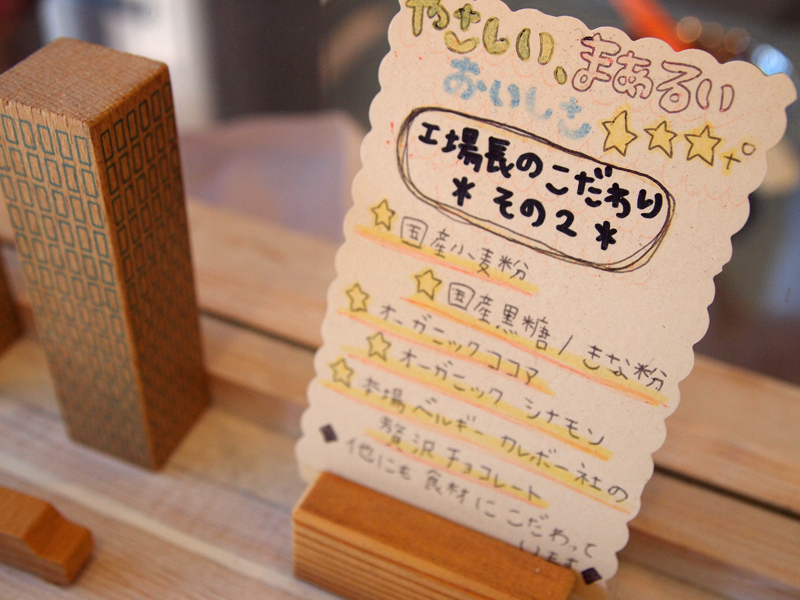 やさしい、まあるい
おいしさ
工場長のこだわり
* その2 *
国産小麦粉
国産黒糖/きな粉
オーガニックココア
オーガニック シナモン
本場ベルギー カレボー社の
贅沢チョコレート
他にも食材にこだわって
います